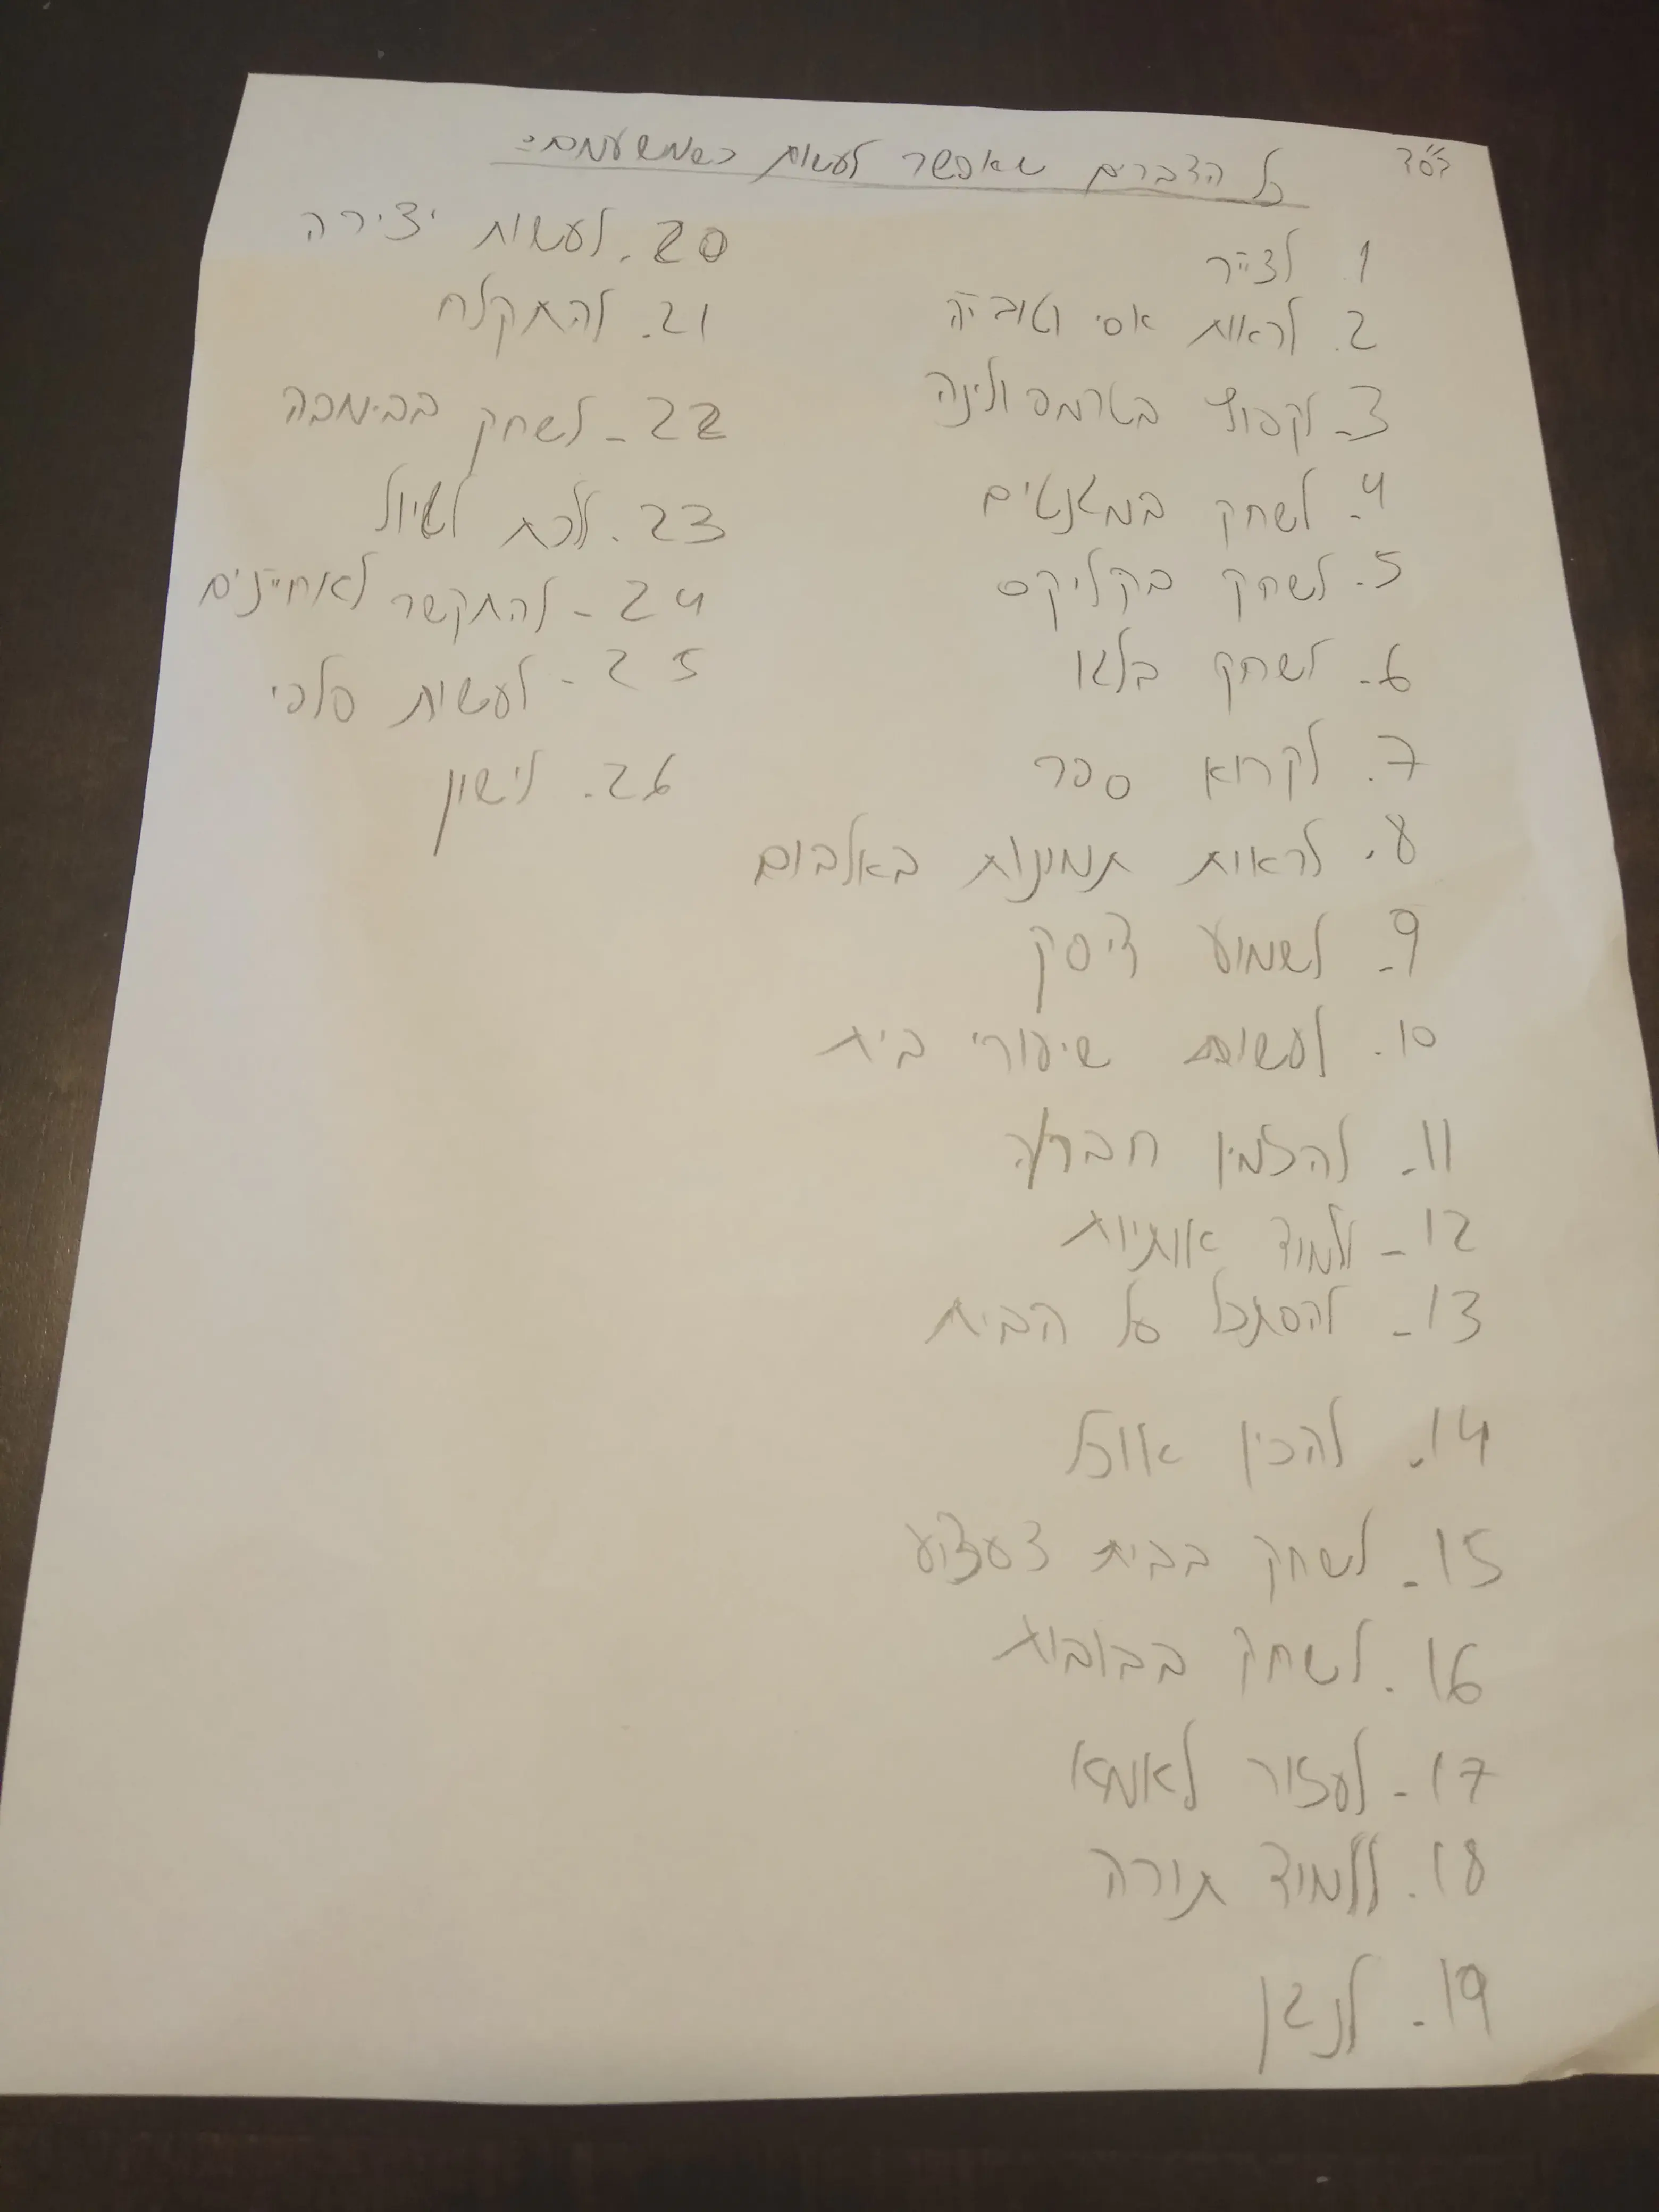 בס"ד
כל הדברים שאפשר לעשות כשמשעמם:
1. לצייר
2. לראות אסי וטוביה
3. לקפוץ בטרמפולינה
4. לשחק במגנטים
5. לשחק בקליקס
6. לשחק בלגו
7. לקרוא ספר
8. לראות תמונות באלבום
9. לשמוע דיסק
10. לעשות שיעורי בית
11. להזמין חבר/ה
12. ללמוד אותיות
13. להסתכל על הבית
14. להכין אוכל
15. לשחק בבית צעצוע
16. לשחק בבובות
17. לעזור לאמא
18. ללמוד תורה
19. לנגן
20. לעשות יצירה
21. להתקלח
22. לשחק בבימבה
23. ללכת לטיול
24. להתקשר לאחיינים
25. לעשות סלפי
26. לישון